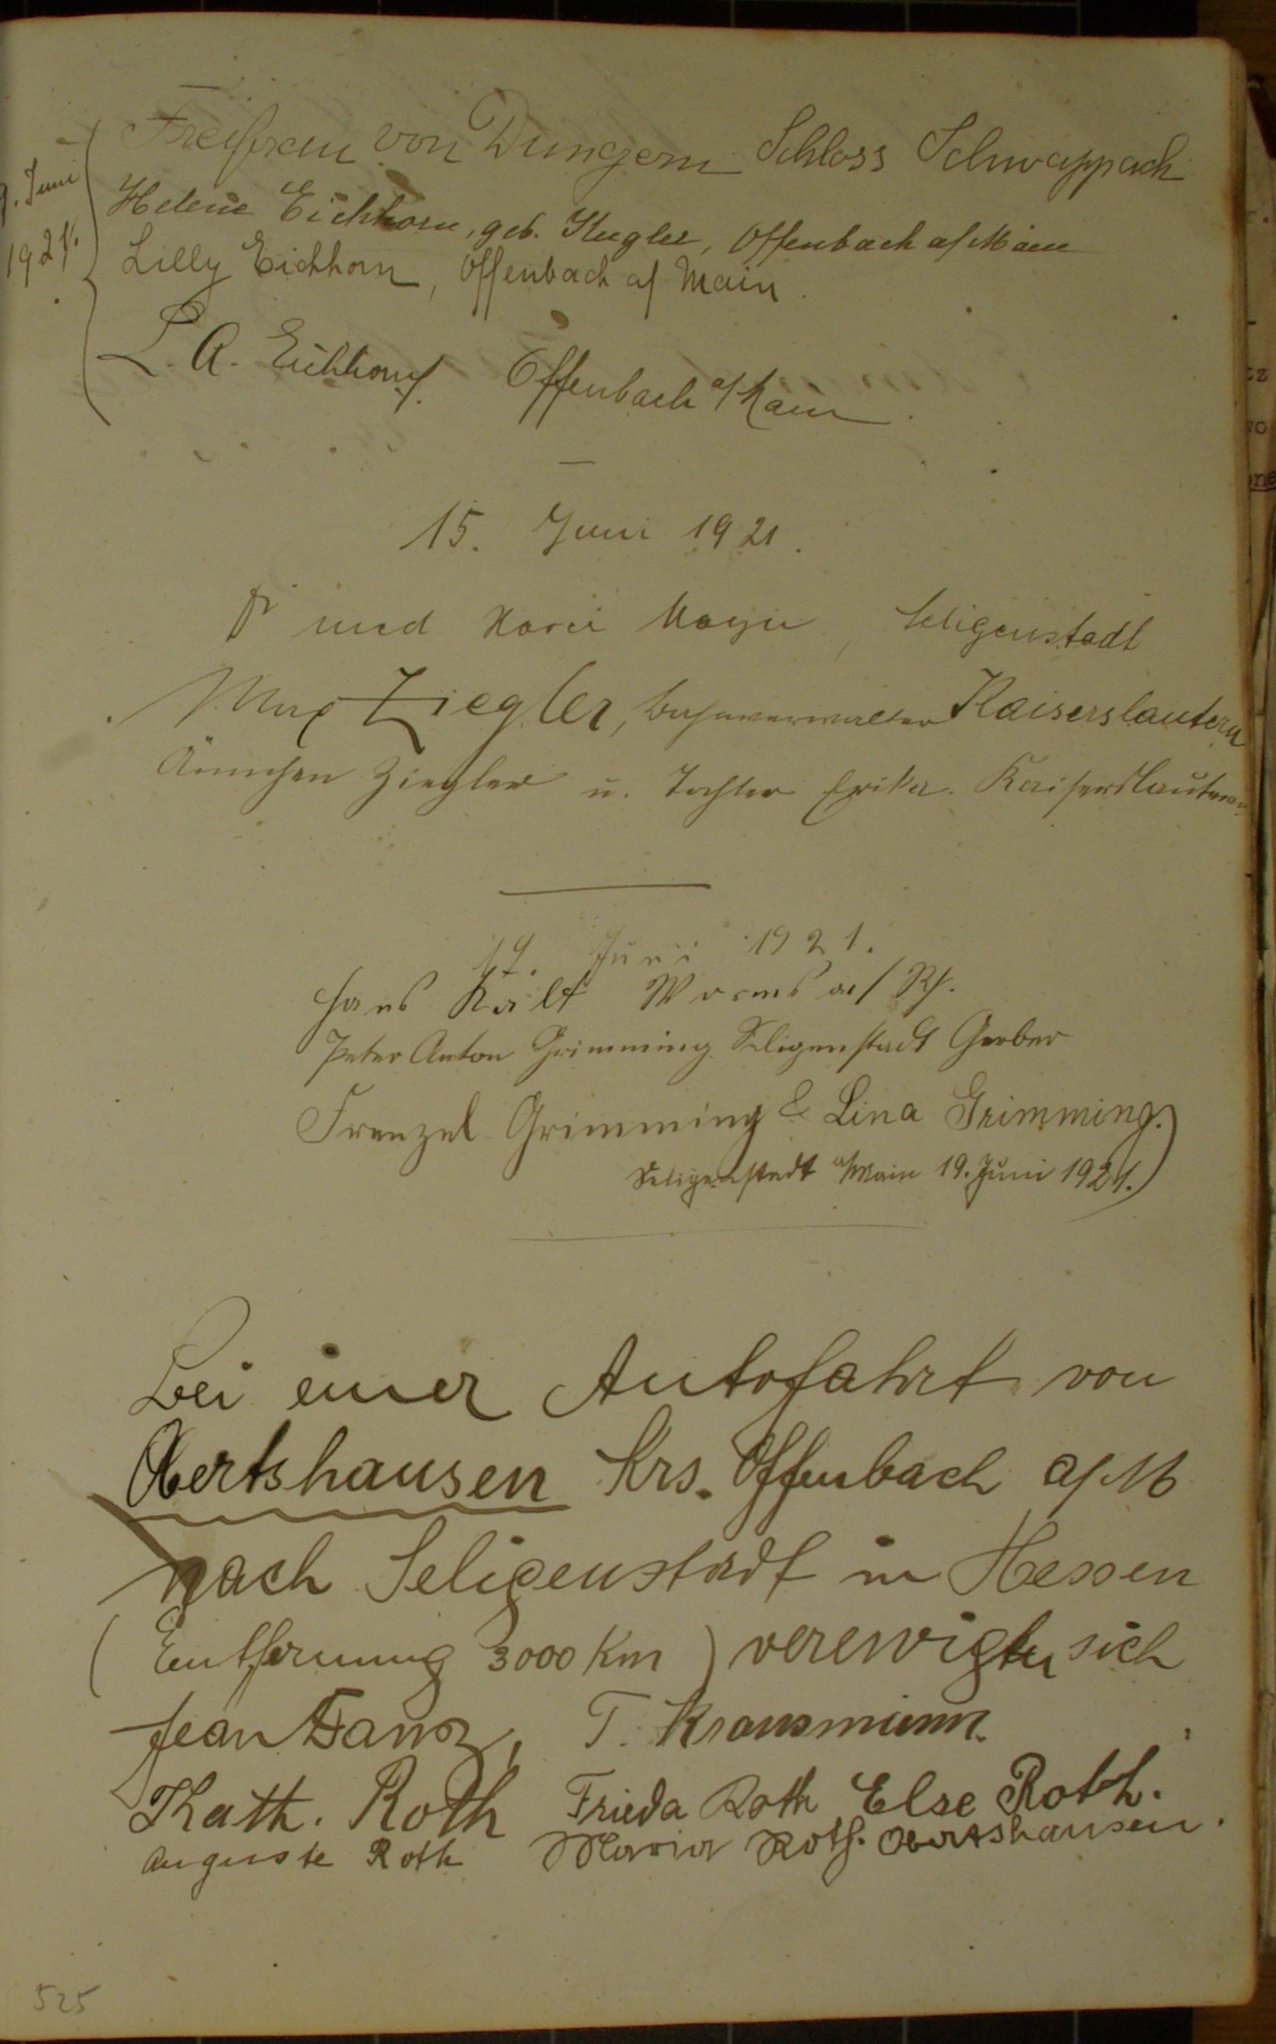 Freifrau von Dungern Schloss Schwappach
9. Juni
1921.
Helene Eichhorn, geb. Kugler, Offenbach a/Main
Lilly Eichhorn, Offenbach a/ Main.
L. A. Eichhorn Offenbach a/Main.
15. Juni 1921.
und Seligenstadt
Max Ziegler, Kaiserslautern
Ännchen Ziegler u. Tochter Erika. Kaiserslautern.
Juni 1921.
Hans Kalt Worms a/Rh.
Peter Anton Grimming Seligenstadt Gerber
Frenzel Grimming & Lina Grimming.
Seligenstadt a/Main 19. Juni 1921.)
Bei einer Autofahrt von
Obertshausen Krs. Offenbach a/M
nach Seligenstadt in Hessen
(Entfernung 3000 Km) verewigten sich
Jean T. Krausmann.
Kath. Roth Frieda Roth Else Roth.
Auguste Roth Maria Roth. Obertshausen.
525